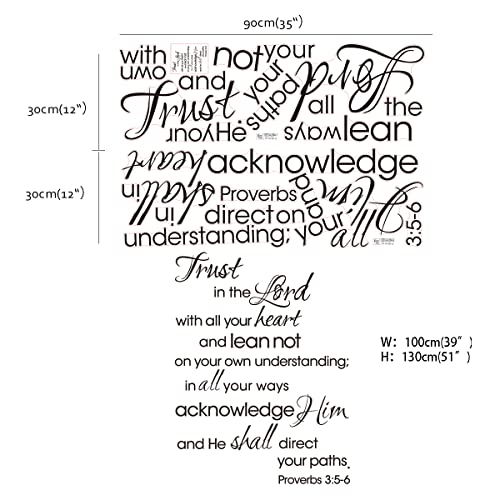 90cm(35")
30cm(12")
30cm(12")
with
own
not
your
and
your
paths
Lord
Trust
all
the
your
He
ways
lean
heart
acknowledge
in
shall
Proverbs
Him
in
direct
on
and
understanding;
your
all
3:5-6
Trust
in the Lord
with all your heart
and lean not
on your own understanding;
in all your ways
acknowledge Him
and He shall direct
your paths.
Proverbs 3:5-6
W: 100cm(39" )
H: 130cm(51" )